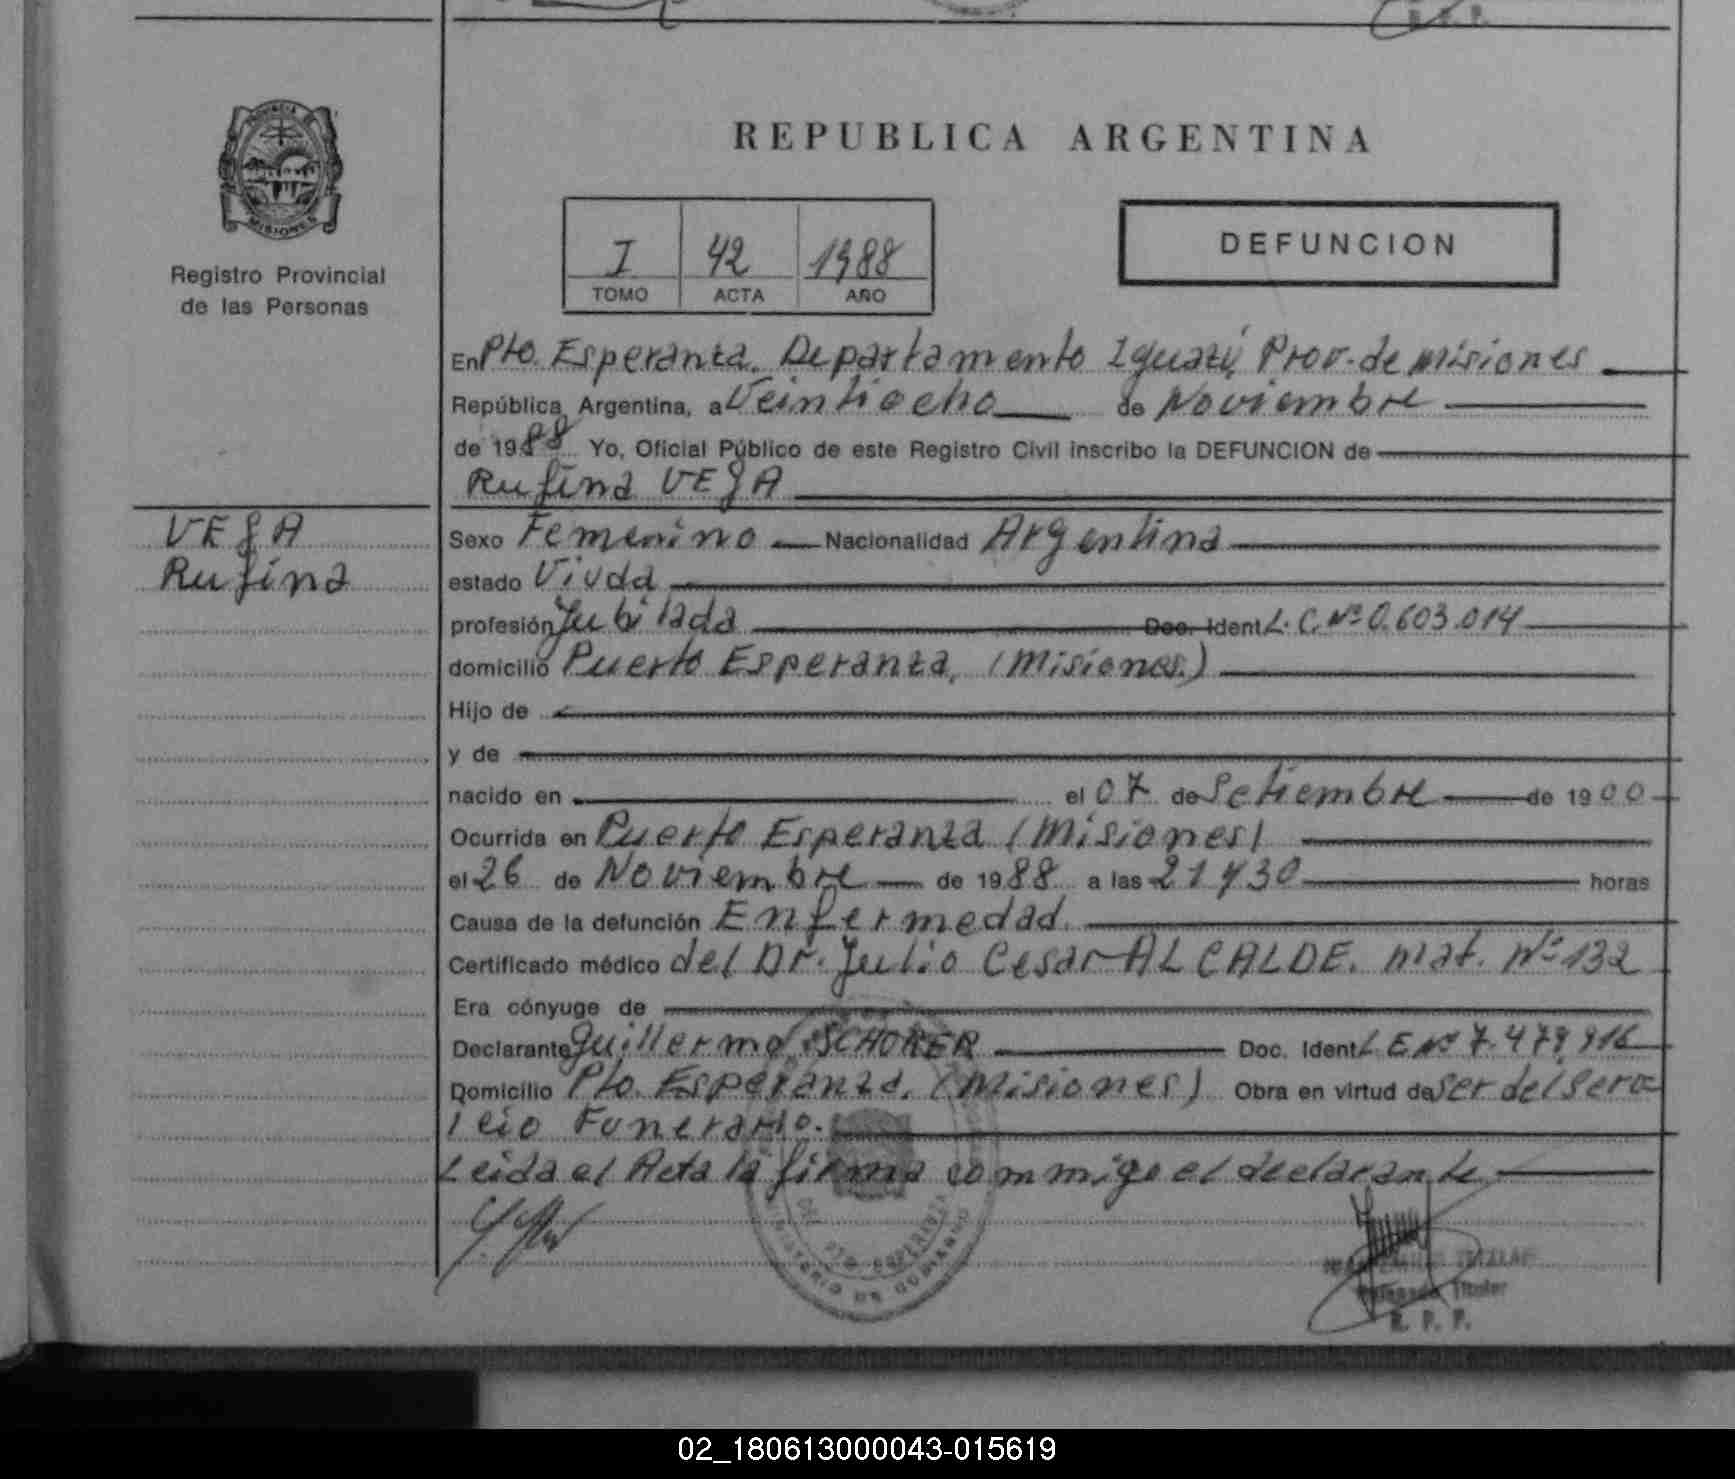 REPUBLICA ARGENTINA
PROVINCIA DE
MISIONES
Registro Provincial
de las Personas
I 42 1988
TOMO ACTA AÑO
DEFUNCION
En Pto. Esperanza. Departamento Iguazú, Prov. de Misiones
República Argentina, a Veintiocho de Noviembre
de 1988 Yo, Oficial Público de este Registro Civil inscribo la DEFUNCION de
Rufina VEGA
VEGA
Rufina
Sexo Femenino Nacionalidad Argentina
estado Viuda
profesión Jubilada Doc. Ident L.C. Nº 0.603.014
domicilio Puerto Esperanza, (Misiones.)
Hijo de
y de
nacido en el 07 de Setiembre de 1900
Ocurrida en Puerto Esperanza (Misiones)
el 26 de Noviembre de 1988 a las 21 y 30 horas
Causa de la defunción Enfermedad.
Certificado médico del Dr. Julio Cesar ALCALDE. Mat. Nº 132
Era cónyuge de
Declarante Guillermo SCHORER Doc. Ident L E Nº 7.479.916
Domicilio Pto. Esperanza. (Misiones) Obra en virtud de ser del Serv=
icio Funerario.
Leida el Acta la firma commigo el declarante
DEL PTO ESPERANZA
MINISTERIO DE GOBIERNO
Delegado Titular
R. P. P.
02_180613000043-015619